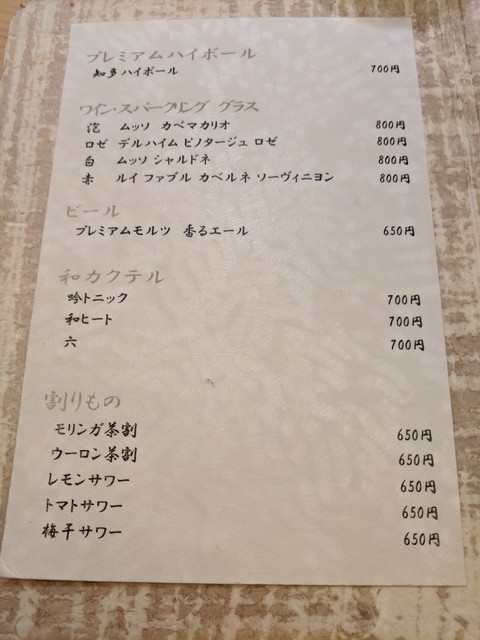 プレミアムハイボール
知多ハイボール 700円
ワイン・スパークリング グラス
泡 ムッソ カベマカリオ 800円
ロゼ デルハイム ピノタージュ ロゼ 800円
白 ムッソ シャルドネ 800円
赤 ルイ ファブル カベルネ ソーヴィニヨン 800円
ビール
プレミアムモルツ 香るエール 650円
和カクテル
吟トニック 700円
和ヒート 700円
六 700円
割りもの
モリンガ茶割 650円
ウーロン茶割 650円
レモンサワー 650円
トマトサワー 650円
梅干サワー 650円